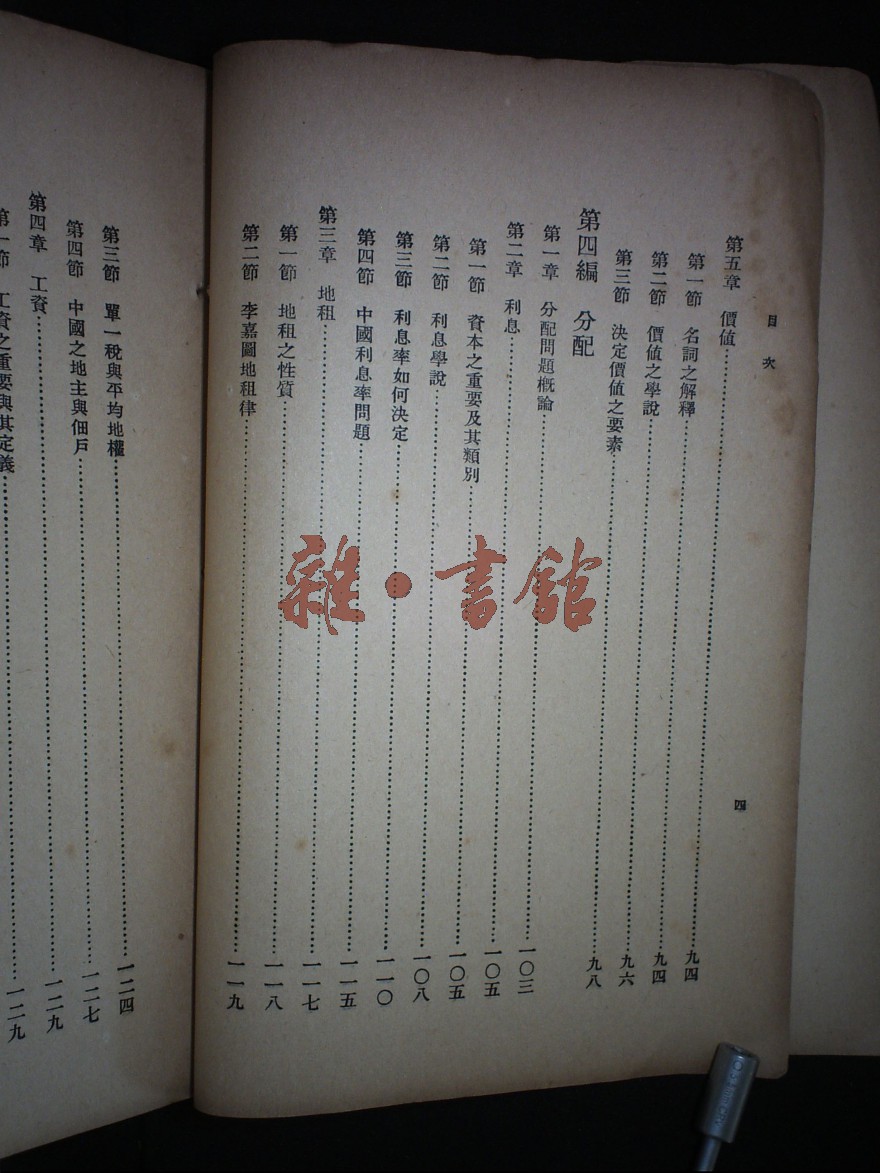 目次
四
第五章 價値……九四
第一節 名詞之解釋……九四
第二節 價値之學說……九六
第三節 決定價値之要素……九八
第四編 分配
第一章 分配問題槪論……一〇三
第二章 利息……一〇五
第一節 資本之重要及其類別……一〇五
第二節 利息學說……一〇八
第三節 利息率如何決定……一一〇
第四節 中國利息率問題……一一五
第三章 地租……一一七
第一節 地租之性質……一一八
第二節 李嘉圖地租律……一一九
第三節 單一稅與平均地權……一二四
第四節 中國之地主與佃戶……一二七
第四章 工資……一二九
第一節 工資之重要與其定義……一二九
雜·書館